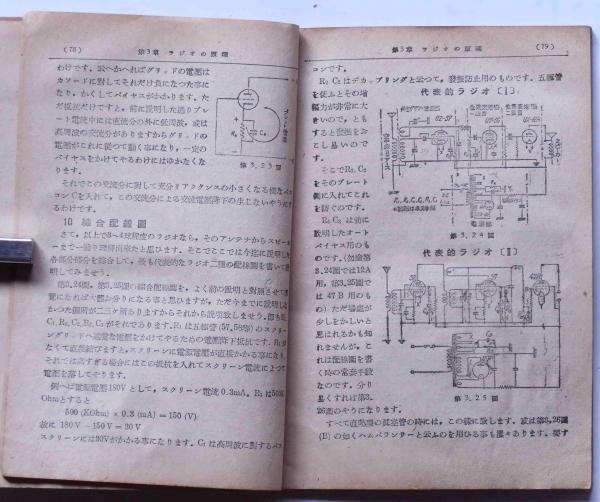 (78)
第3章 ラジオの原理
わけです。云へかへればグリッドの電壓は
カソードに對してそれだけ負になつた事に
なり、かくしてバイヤスがかかります。た
だ抵抗だけですと、前に説明した通りプレ
ート電流中には直流分の外に低周波、或は
高周波の交流分がありますからグリッドの
電壓がこれに從つて動く事になり、一定の
バイヤスをかけてやるわけにはゆかなくな
ります。
第3.23圖
それでこの交流分に對して充分リアクタンスの小さくなる樣な
コンCを入れて、この交流分による交流電壓降下の生じないやうに
るわけです。
10 綜合配線圖
さて、以上で3~4球程度のラジオなら、そのアンテナからスピーカ
ーまで一通り理解出來たと思ひます。そこでここでは今迄に説明し
各部分部分を綜合して、最も代表的なラジオ二種の配線圖を書いて説
明してみませう。
第3.24圖、第3.25圖の綜合配線圖を、よく前の説明と對照させて
覽になれば大體お分りになる事と思ひますが、ただ今までに説明し
かつた個所が二三ヶ所ありますからそれから説明致しませう。
C₁, R₂, C₂, R₃, C₃ がそれであります。R₁ は五極管 (57, 58等) のスクリー
ングリッドへ適當な電壓をかけてやるための電壓降下抵抗です。R₁が
なくて直接結びますと、スクリーンに電源電壓が直接かかる事になり、
それでは高すぎる場合にはこの抵抗を入れてスクリーン電流によつて
電壓を落してやります。
例へば電源電壓180Vとして、スクリーン電流0.3mA、R₁は500K
Ohmとすると
500 (KOhm) × 0.3 (mA) = 150 (V)
故に 180V − 150V = 30V
スクリーンには30Vがかかる事になります。C₁は高周波に對するパス
第3章 ラジオの原理
(79)
コンです。
R₂ C₂はデカップリングと云つて、發振防止用のものです。五極管
を使ふとその增
幅力が非常に大
きいので、とも
すると發振をお
こし易いので
す。
そこでR₂ C₂
をそのプレート
側に入れてこれ
を防ぐのです。
R₃ C₃ は前に
説明したオート
バイヤス用のも
のです。(勿論第
3.24圖では12A
用、第3.25圖で
は47B用のも
の)ただ場處が
少しをかしいと
思はれるかも知
れませんが、こ
れは配線圖を書
く時の常套手段
なのです。分り
易くすれば第3.
26圖のやうになります。
代表的ラジオ〔I〕
第3.24圖
代表的ラジオ〔II〕
第3.25圖
すべて直熱型の眞空管の時には、この樣に致します。或は第3.26圖
(B)の如くハムバランサーと云ふのを用ひる事も屢々あります。要す